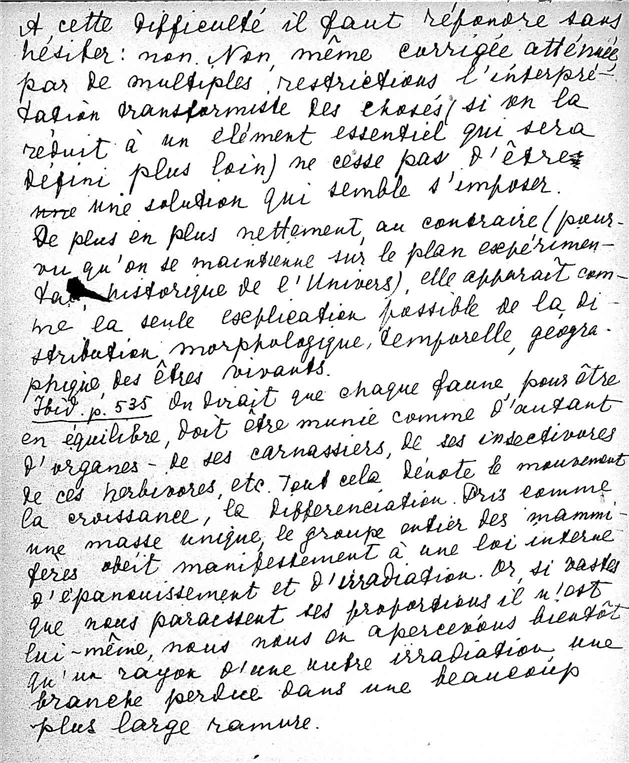 A cette difficulté il faut répondre sans
hésiter: non. Non, même corrigée atténuée
par de multiples restrictions l'interpré-
tation transformiste des choses (si on la
réduit à un elément essentiel qui sera
défini plus loin) ne cesse pas d'être
une une solution qui semble s'imposer.
De plus en plus nettement, au contraire (pour-
vu qu'on se maintienne sur le plan expérimen-
tal, historique de l'Univers), elle apparaît com-
me la seule explication possible de la di-
stribution morphologique, temporelle, géogra-
phique des êtres vivants.
Ibid. p. 535 On dirait que chaque faune, pour être
en équilibre, doit être munie comme d'autant
d'organes - de ses carnassiers, de ses insectivores
de ces herbivores, etc. Tout cela dénote le mouvement
la croissance, la differenciation. Pris comme
une masse unique, le groupe entier des mammi-
feres obeit manifestement à une loi interne
d'épanouissement et d'irradiation. Or, si vastes
que nous paraissent ses proportions il n'est
lui-même, nous nous en apercevons bientôt
qu'un rayon d'une autre irradiation une
branche perdue dans une beaucoup
plus large ramure.